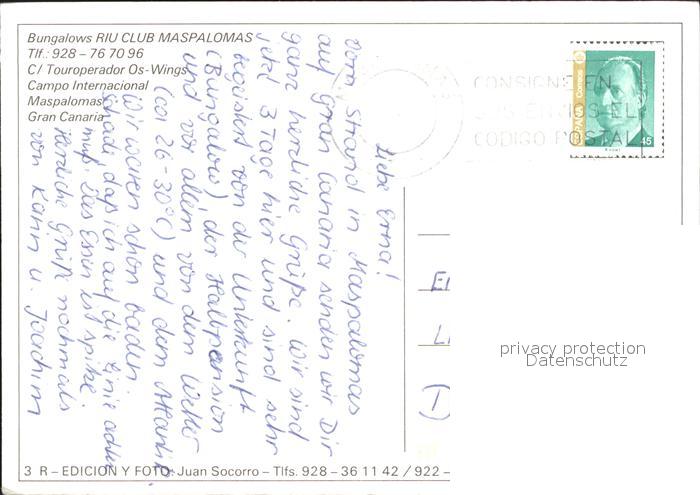 Bungalows RIU CLUB MASPALOMAS
Tlf.: 928 – 76 70 96
C/ Touroperador Os-Wings
Campo Internacional
Maspalomas
Gran Canaria
CONSIGNE EN
SUS ENVIOS EL
CODIGO POSTAL
ESPAÑA Correos
45
Liebe Erna!
Vom Strand in Maspalomas
auf Gran Canaria senden wir Dir
ganz herzliche Grüße. Wir sind
jetzt 3 Tage hier und sind sehr
begeistert von der Unterkunft
(Bungalow), der Halbpension
und vor allem von dem Wetter
(ca 26-30°C) und dem Atlantik.
Wir waren schon baden.
Schade, daß ich auf die Linie achten
muß. Das Essen ist spitze.
Herzliche Grüße nochmals
von Karin u. Joachim
privacy protection
Datenschutz
3 R – EDICION Y FOTO: Juan Socorro – Tlfs. 928 – 36 11 42 / 922 –